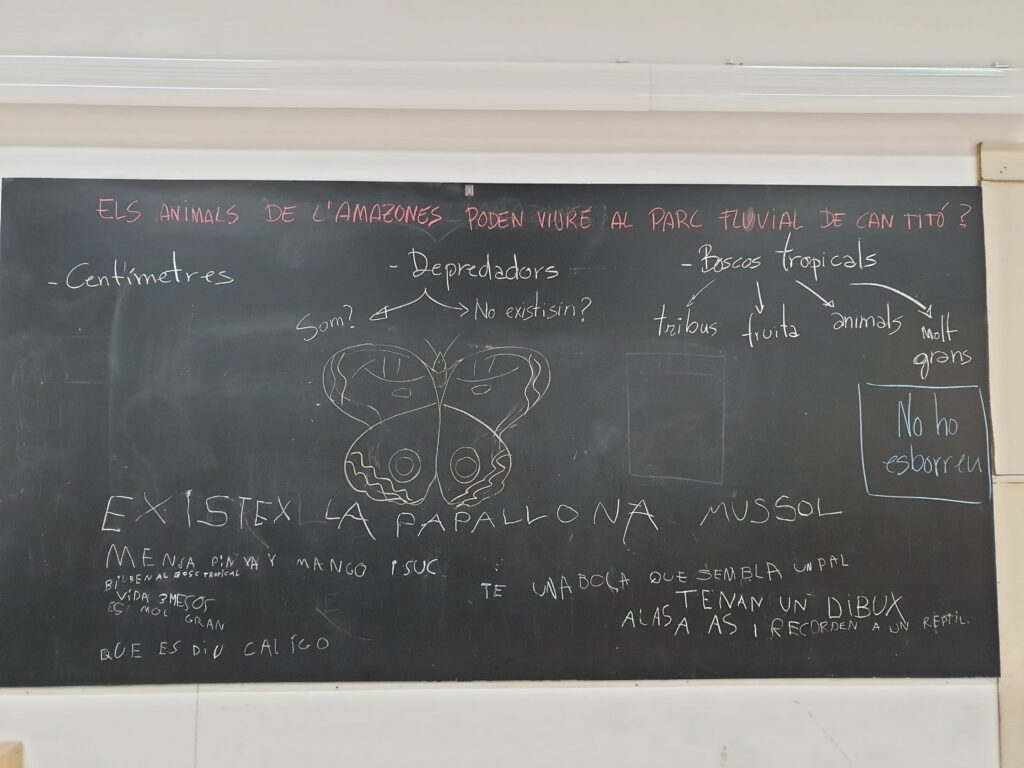 ELS ANIMALS DE L'AMAZONES PODEN VIURE AL PARC FLUVIAL DE CAN TITÓ?
- Centímetres
- Depredadors
Som?
No existisin?
- Boscos tropicals
tribus
fruita
animals
Molt
grans
No ho
esborreu
EXISTEX LA PAPALLONA MUSSOL
MENSA PINYA Y MANGO I SUC
BIUBEN AL BOSC TROPICAL
VIDA 3 MESOS
ES MOL GRAN
QUE ES DIU CALIGO
TE UNA BOCA QUE SEMBLA UN PAL
TENAN UN DIBUX
ALAS A AS I RECORDEN A UN REPTIL.